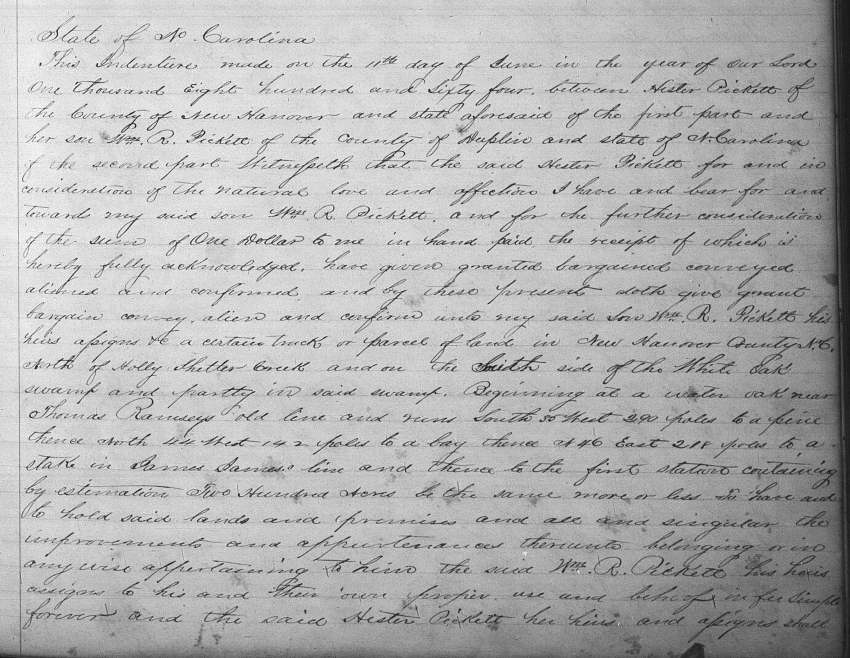 State of No. Carolina
This Indenture made on the 11th day of June in the year of our Lord
One thousand Eight hundred and Sixty four, between Hester Pickett of
the County of New Hanover and state aforesaid of the first part and
her son Wm. R. Pickett of the County of Duplin and state of N. Carolina
of the second part Witnesseth that the said Hester Pickett for and in
consideration of the natural love and affection I have and bear for and
towards my said son Wm. R. Pickett, and for the further consideration
of the sum of One Dollar to me in hand paid the receipt of which is
hereby fully acknowledged, have given granted bargained conveyed
aliened and confirmed and by these presents doth give grant
bargain convey, alien and confirm unto my said Son Wm. R. Pickett his
heirs assigns &c a certain track or parcel of land in New Hanover County N.C.
North of Holly Shelter Creek and on the South side of the White Oak
swamp and partly in said swamp. Beginning at a water oak near
Thomas Ramseys old line and runs South 50 West 290 poles to a pine
thence North 44 West 142 poles to a bay thence N 46 East 288 poles to a
stake in James James's line and thence to the first station containing
by estemation Two Hundred Acres be the same more or less To have and
to hold said lands and premises and all and singular the
improvements and appurtenances thereunto belonging or in
any wise appertaining to him the said Wm. R. Pickett his heirs
assigns to his and their own proper use and behoof in fee Simple
forever and the said Hester Pickett her heirs and assigns shall